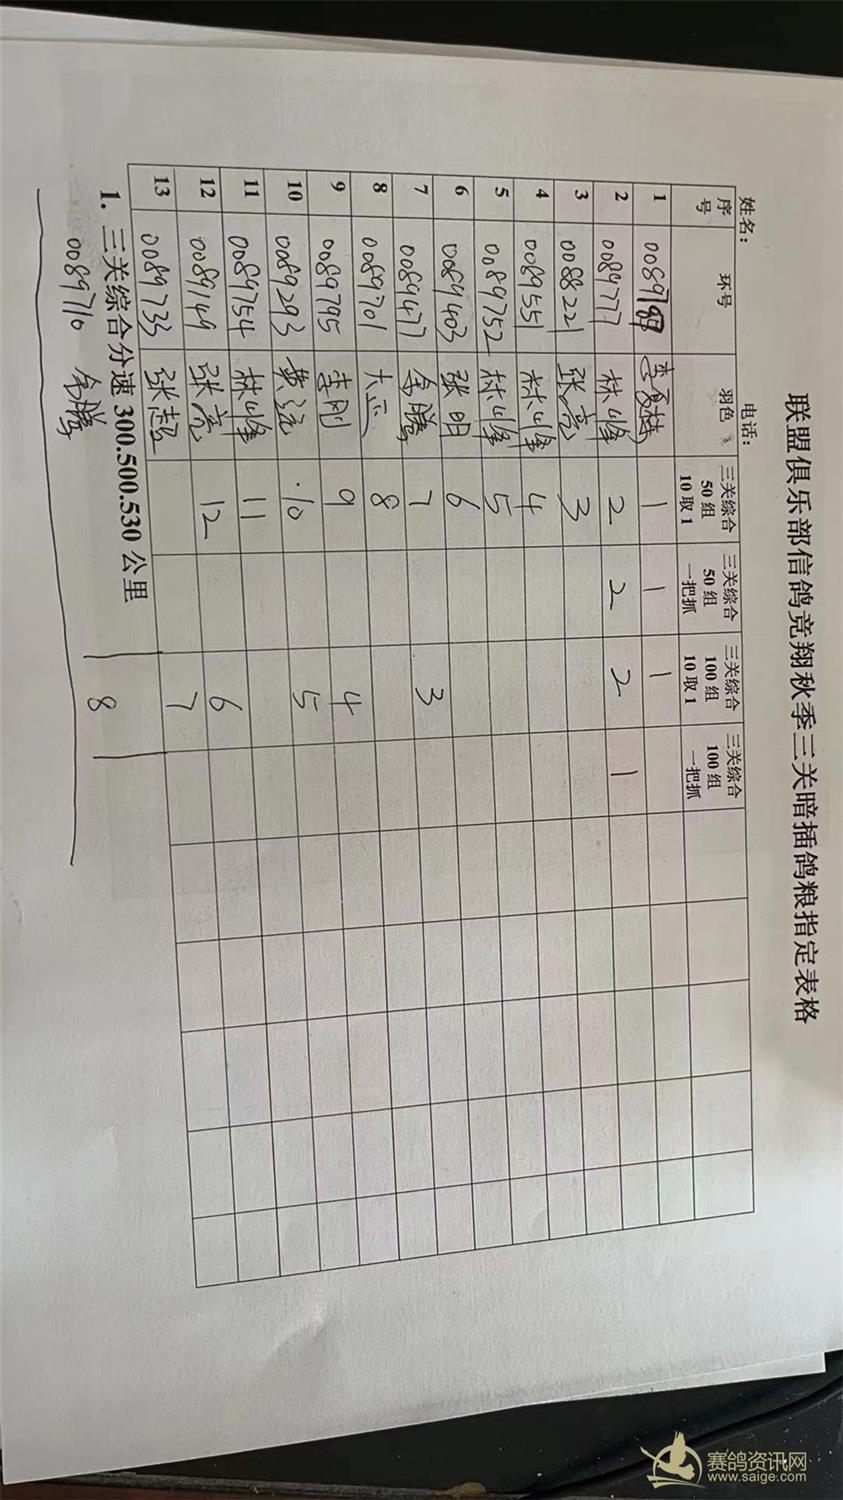 联盟俱乐部信鸽竞翔秋季三关暗插鸽粮指定表格
姓名: 电话:
序号 环号 羽色 三关综合 50组 10取1 三关综合 50组 一把抓 三关综合 100组 10取1 三关综合 100组 一把抓
1 1 1 1
2 0089777 林峰 2 2 2 1
3 0088221 张亮 3
4 0089551 林峰 4
5 0089752 林峰 5
6 0089403 张明 6
7 0089477 余腾 7 3
8 0089701 大正 8
9 0089795 李刚 9 4
10 0089293 黄远 10 5
11 0089754 林峰 11
12 0089149 张亮 12 6
13 0089733 张超 7
1. 三关综合分速 300.500.530 公里
0089710 余腾 8
赛鸽资讯网
www.saige.com